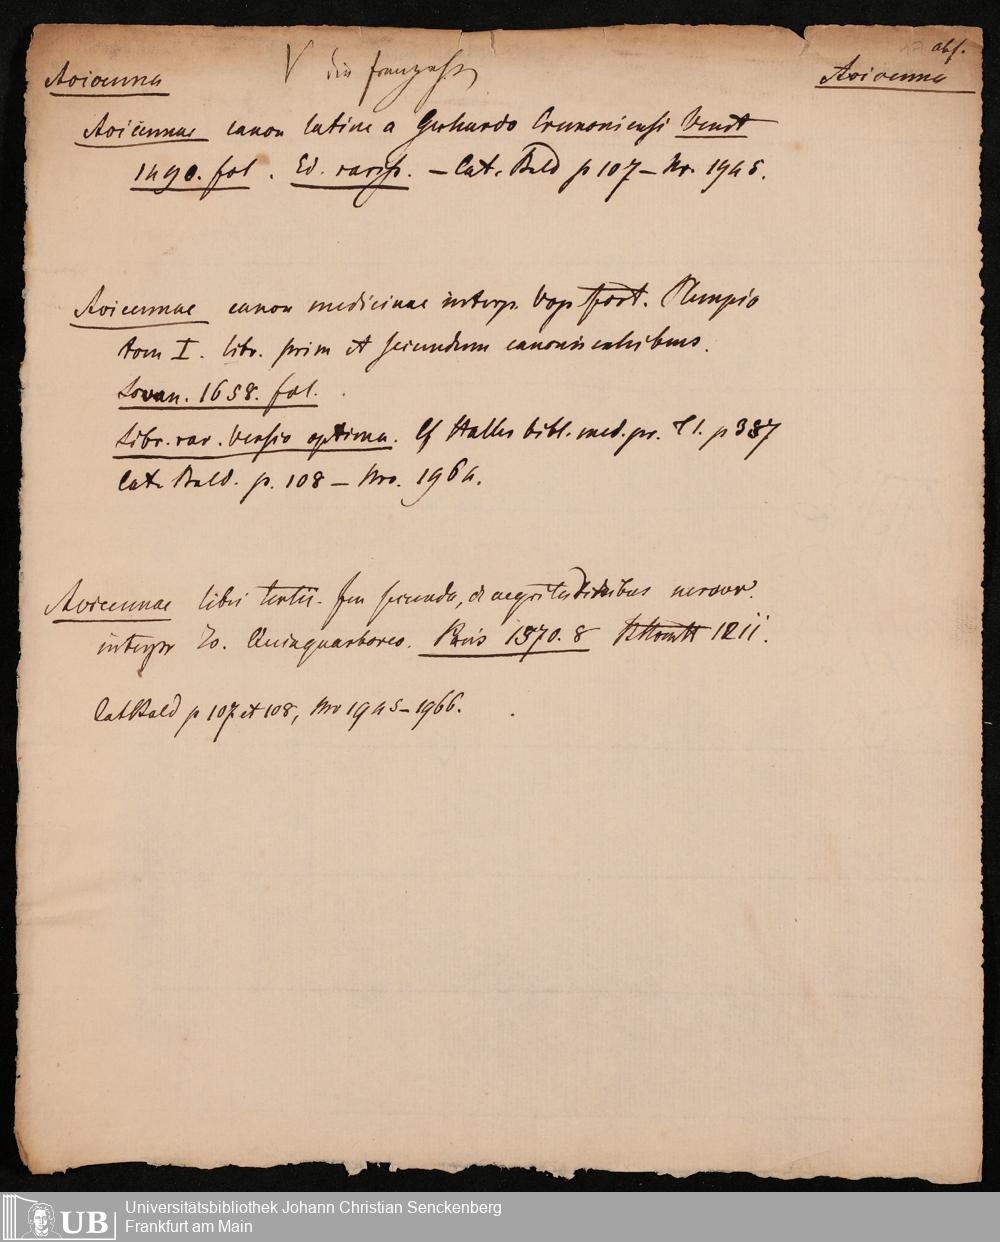 abs.
Avicenna
V die französ.
Avicenna
Avicennae canon latine a Gerhardo Cremoniensi Venet
1490. fol. Ed. rariss. – Cat. Bald p 107 – Nr. 1945.
Avicennae canon medicinae interpr. Vop fort. Plempio
tom I. libr. prim et secundum canonis exhibens.
Lovan. 1658. fol.
Libr. rar. Versio optima. Cf Haller bibl. med. pr. T 1. p 387
Cat. Bald. p. 108 – Nro. 1964.
Avicennae libri tertii. fen secunda, de aegritudinibus nervor.
interpr Jo. Quinquarboreo. Paris 1570. 8
Cat Bald p 107 et 108, Nro 1945–1966.
UB
Universitätsbibliothek Johann Christian Senckenberg
Frankfurt am Main